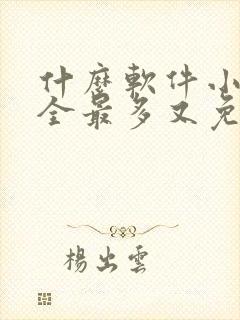 什麼軟件小
全最多又免
楊出雲